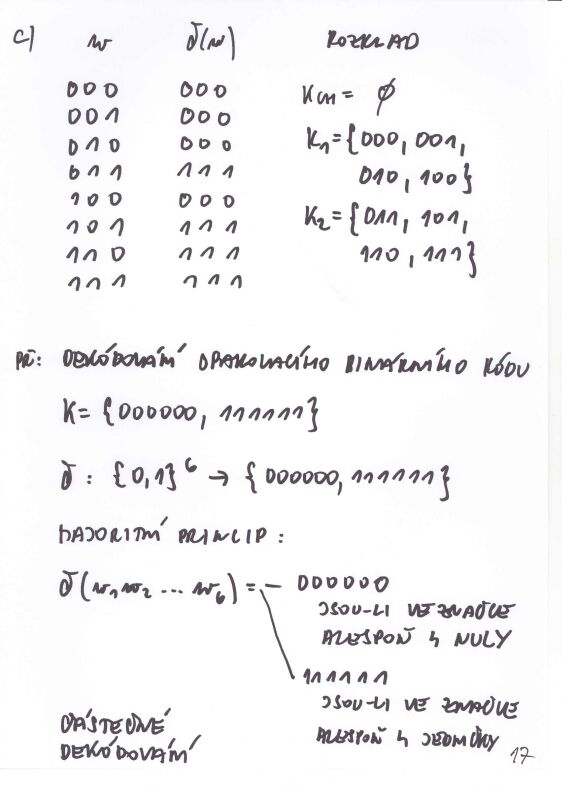 c) w δ(w) ROZKLAD
000 000 K_CH = ∅
001 000 K₁ = {000, 001,
010 000 010, 100}
011 111 K₂ = {011, 101,
100 000 110, 111}
101 111
110 111
111 111
PŘ: DEKÓDOVÁNÍ OPAKOVACÍHO BINÁRNÍHO KÓDU
K = {000000, 111111}
δ : {0,1}⁶ → {000000, 111111}
MAJORITNÍ PRINCIP :
δ(w₁w₂ ... w₆) = 000000
JSOU-LI VE ZNAČCE
ALESPOŇ 4 NULY
111111
JSOU-LI VE ZNAČCE
ALESPOŇ 4 JEDNIČKY
ČÁSTEČNÉ
DEKÓDOVÁNÍ
17